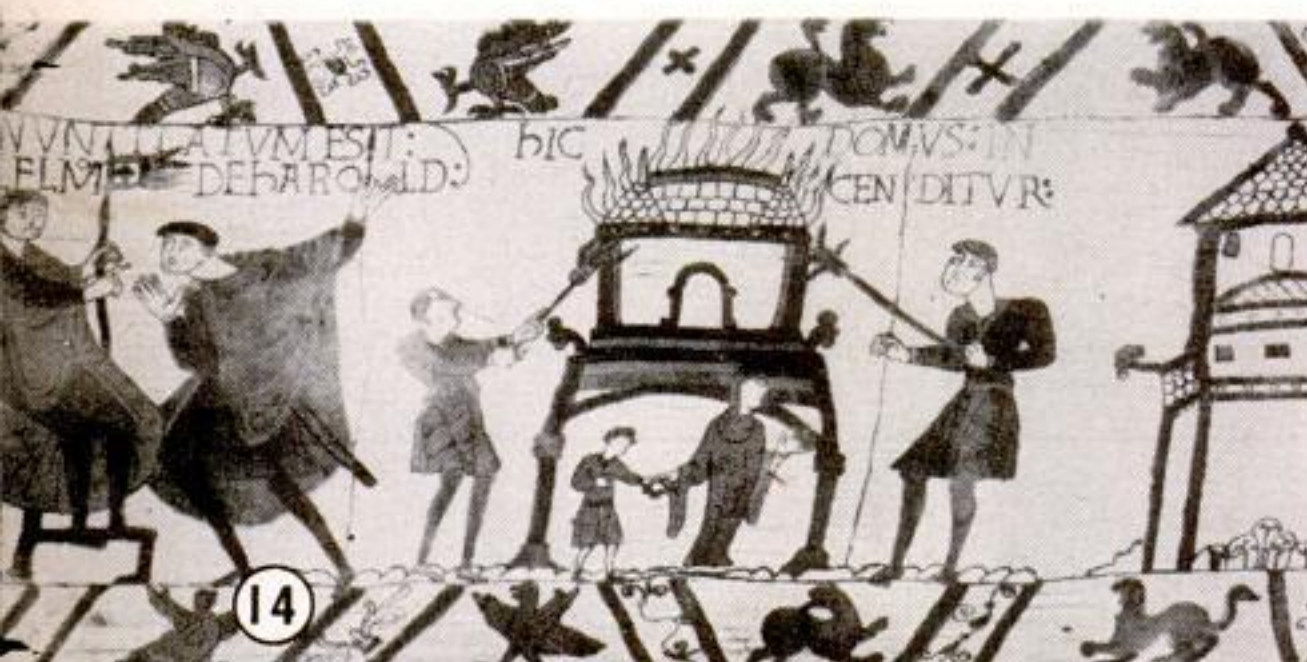 NVNTIATVM EST:
ELMO DE hAROLD:
hIC DOMVS: IN
CENDITVR:
14